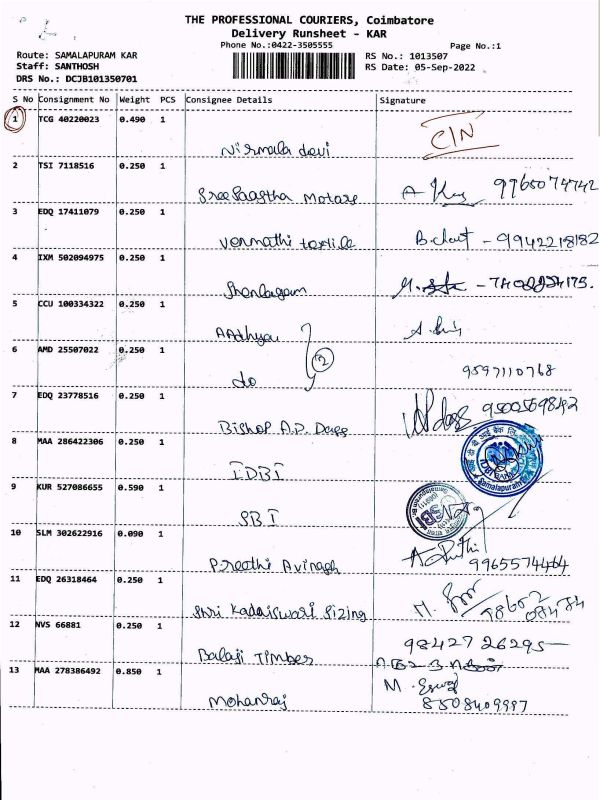 THE PROFESSIONAL COURIERS, Coimbatore
Delivery Runsheet - KAR
Phone No.:0422-3505555
Page No.:1
Route: SAMALAPURAM KAR
RS No.: 1013507
Staff: SANTHOSH
RS Date: 05-Sep-2022
DRS No.: DCJB101350701
S No Consignment No Weight PCS Consignee Details Signature
1 TCG 40220023 0.490 1
Nirmala devi
2 TSI 7118516 0.250 1
Sree Saastha Motars 9965074742
3 EDQ 17411079 0.250 1
Venmathi textile - 9942218182
4 IXM 502094975 0.250 1
Shenbagam
5 CCU 100334322 0.250 1
6 AMD 25507022 0.250 1
do 2 9597110768
7 EDQ 23778516 0.250 1
Bishop A.D. Dass
8 MAA 286422306 0.250 1
IDBI
9 KUR 527086655 0.590 1
SBI
10 SLM 302622916 0.090 1
Preethi Avinash 9965574464
11 EDQ 26318464 0.250 1
Shri Kadaiswari Sizing
12 NVS 66881 0.250 1
Balaji Timber 98427 26295
13 MAA 278386492 0.850 1
Mohanraj 8508409997